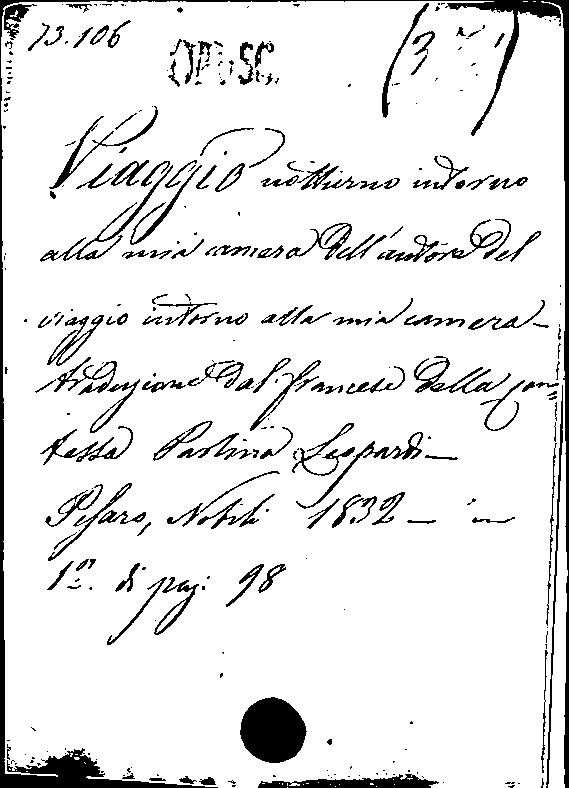 73.106
OPUSC.
(3
Viaggio notturno intorno
alla mia camera dell'autore del
viaggio intorno alla mia camera –
traduzione dal francese della con=
tessa Paolina Leopardi –
Pesaro, Nobili 1832 – in
1n. di pag: 98